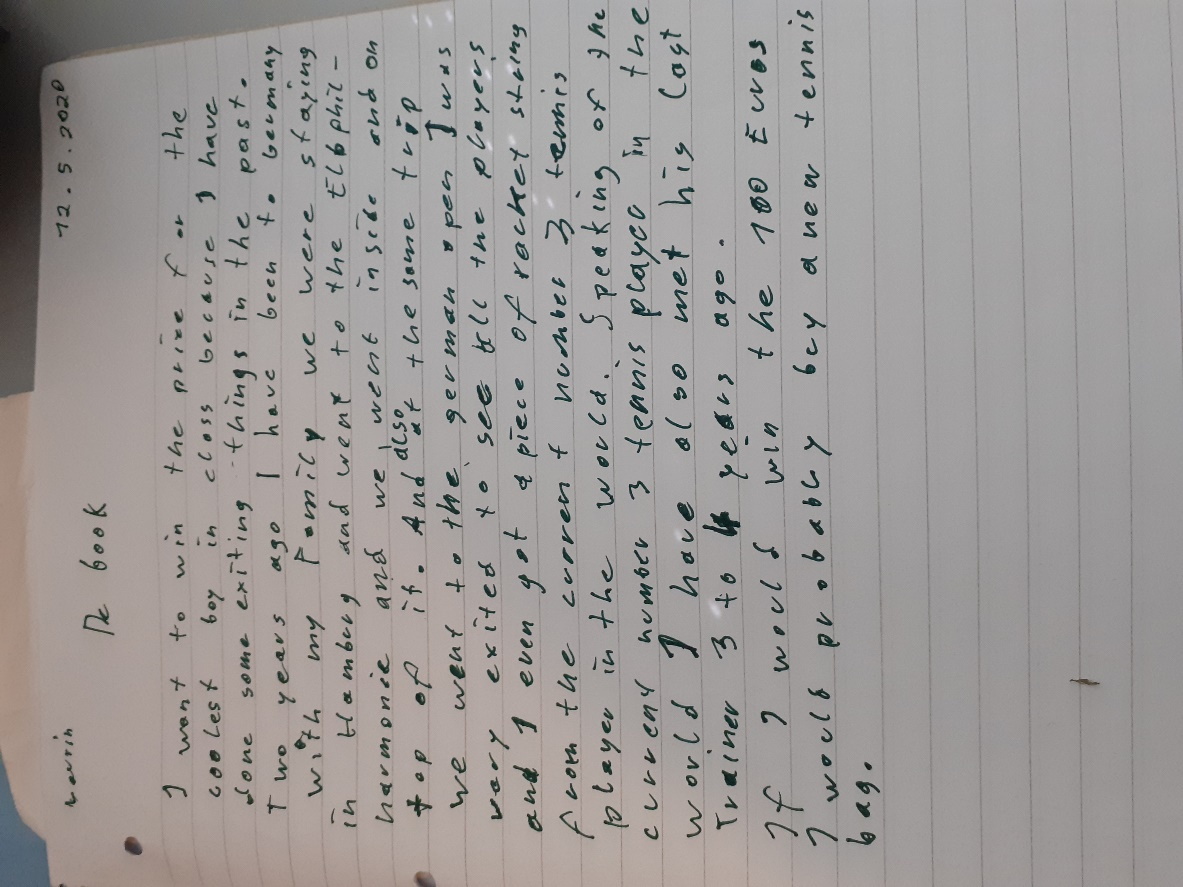 Laurin 12.5.2020
De book
I want to win the prize for the
coolest boy in class because I have
done some exiting things in the past.
Two years ago I have been to Germany
with my Family we were staying
in Hamburg and went to the Elbphil-
harmonie and we went inside and on
top of it. And also at the same trip
we went to the german open I was
vary exited to see all the players
and I even got a piece of racket string
from the current number 3 tennis
player in the world. Speaking of the
current number 3 tennis player in the
world I have also met his last
Trainer 3 to 4 years ago.
If I would win the 100 Euros
I would probably bey a new tennis
bag.